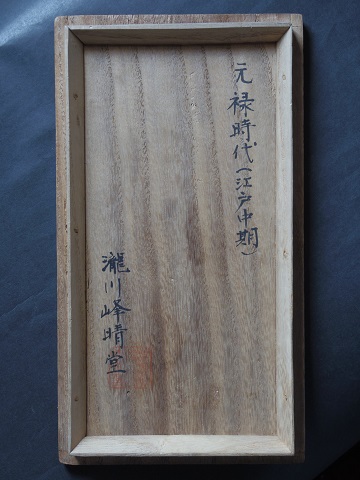 元禄時代(江戸中期)
瀧川峰晴堂